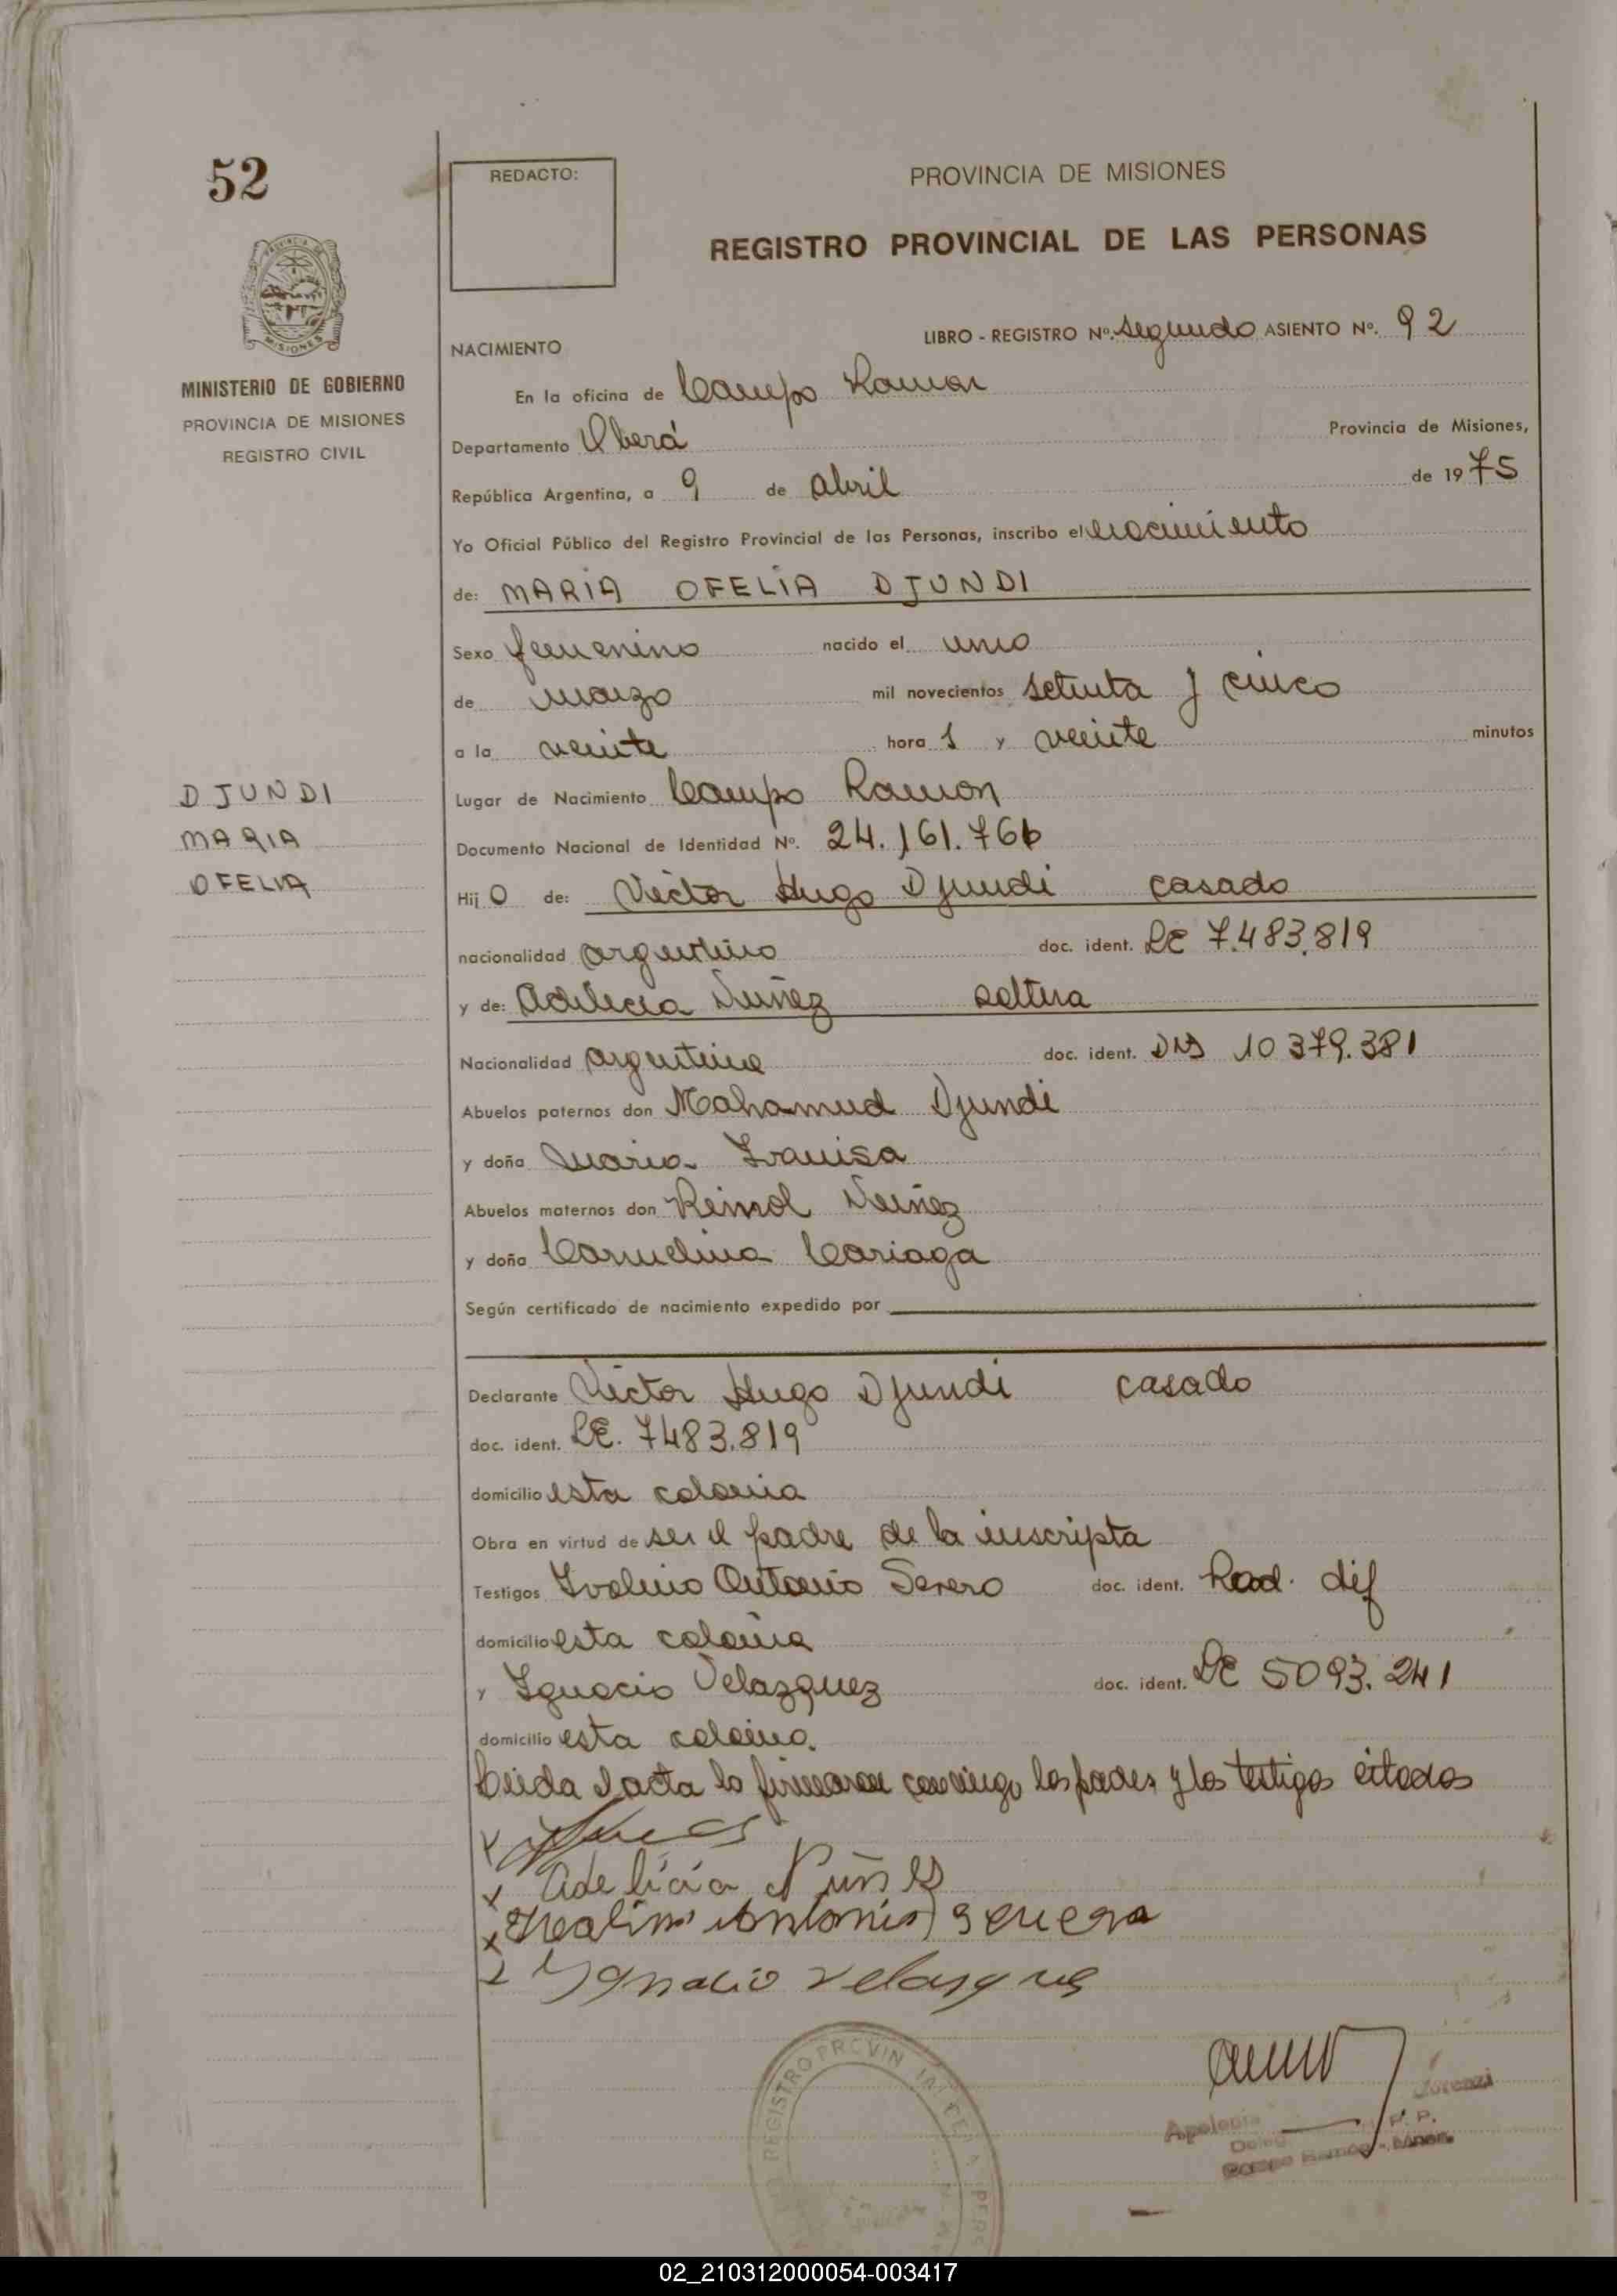 52
REDACTO:
PROVINCIA DE MISIONES
REGISTRO PROVINCIAL DE LAS PERSONAS
MISIONES
MINISTERIO DE GOBIERNO
PROVINCIA DE MISIONES
REGISTRO CIVIL
LIBRO - REGISTRO Nº. segundo ASIENTO Nº. 92
NACIMIENTO
En la oficina de Campo Ramon
Departamento Oberá Provincia de Misiones,
República Argentina, a 9 de abril de 1975
Yo Oficial Público del Registro Provincial de las Personas, inscribo el nacimiento
de: MARIA OFELIA DJUNDI
Sexo femenino nacido el uno
de marzo mil novecientos setenta y cinco
a la veinte hora s y veinte minutos
DJUNDI
MARIA
OFELIA
Lugar de Nacimiento Campo Ramon
Documento Nacional de Identidad Nº. 24.161.766
Hij a de: Victor Hugo Djundi casado
nacionalidad argentino doc. ident. LE 7.483.819
y de: Adelicia Nuñez soltera
Nacionalidad argentina doc. ident. DNI 10 379.381
Abuelos paternos don Mahamud Djundi
y doña Maria
Abuelos maternos don Nuñez
y doña Carmelina Cariaga
Según certificado de nacimiento expedido por
Declarante Victor Hugo Djundi casado
doc. ident. LE. 7483.819
domicilio esta colonia
Obra en virtud de ser el padre de la inscripta
Testigos Antonio doc. ident. dif
domicilio esta colonia
y Ignacio Velazquez doc. ident. LE 5093.241
domicilio esta colonia.
Leida el acta la firmaron conmigo los padres y los testigos citados
x
x Adelicia Nuñes
x Antonio
x Ygnacio Velasques
REGISTRO PROVINCIAL DE LAS PERS
Lorenzi
Campo Ramón - Mnes.
02_210312000054-003417